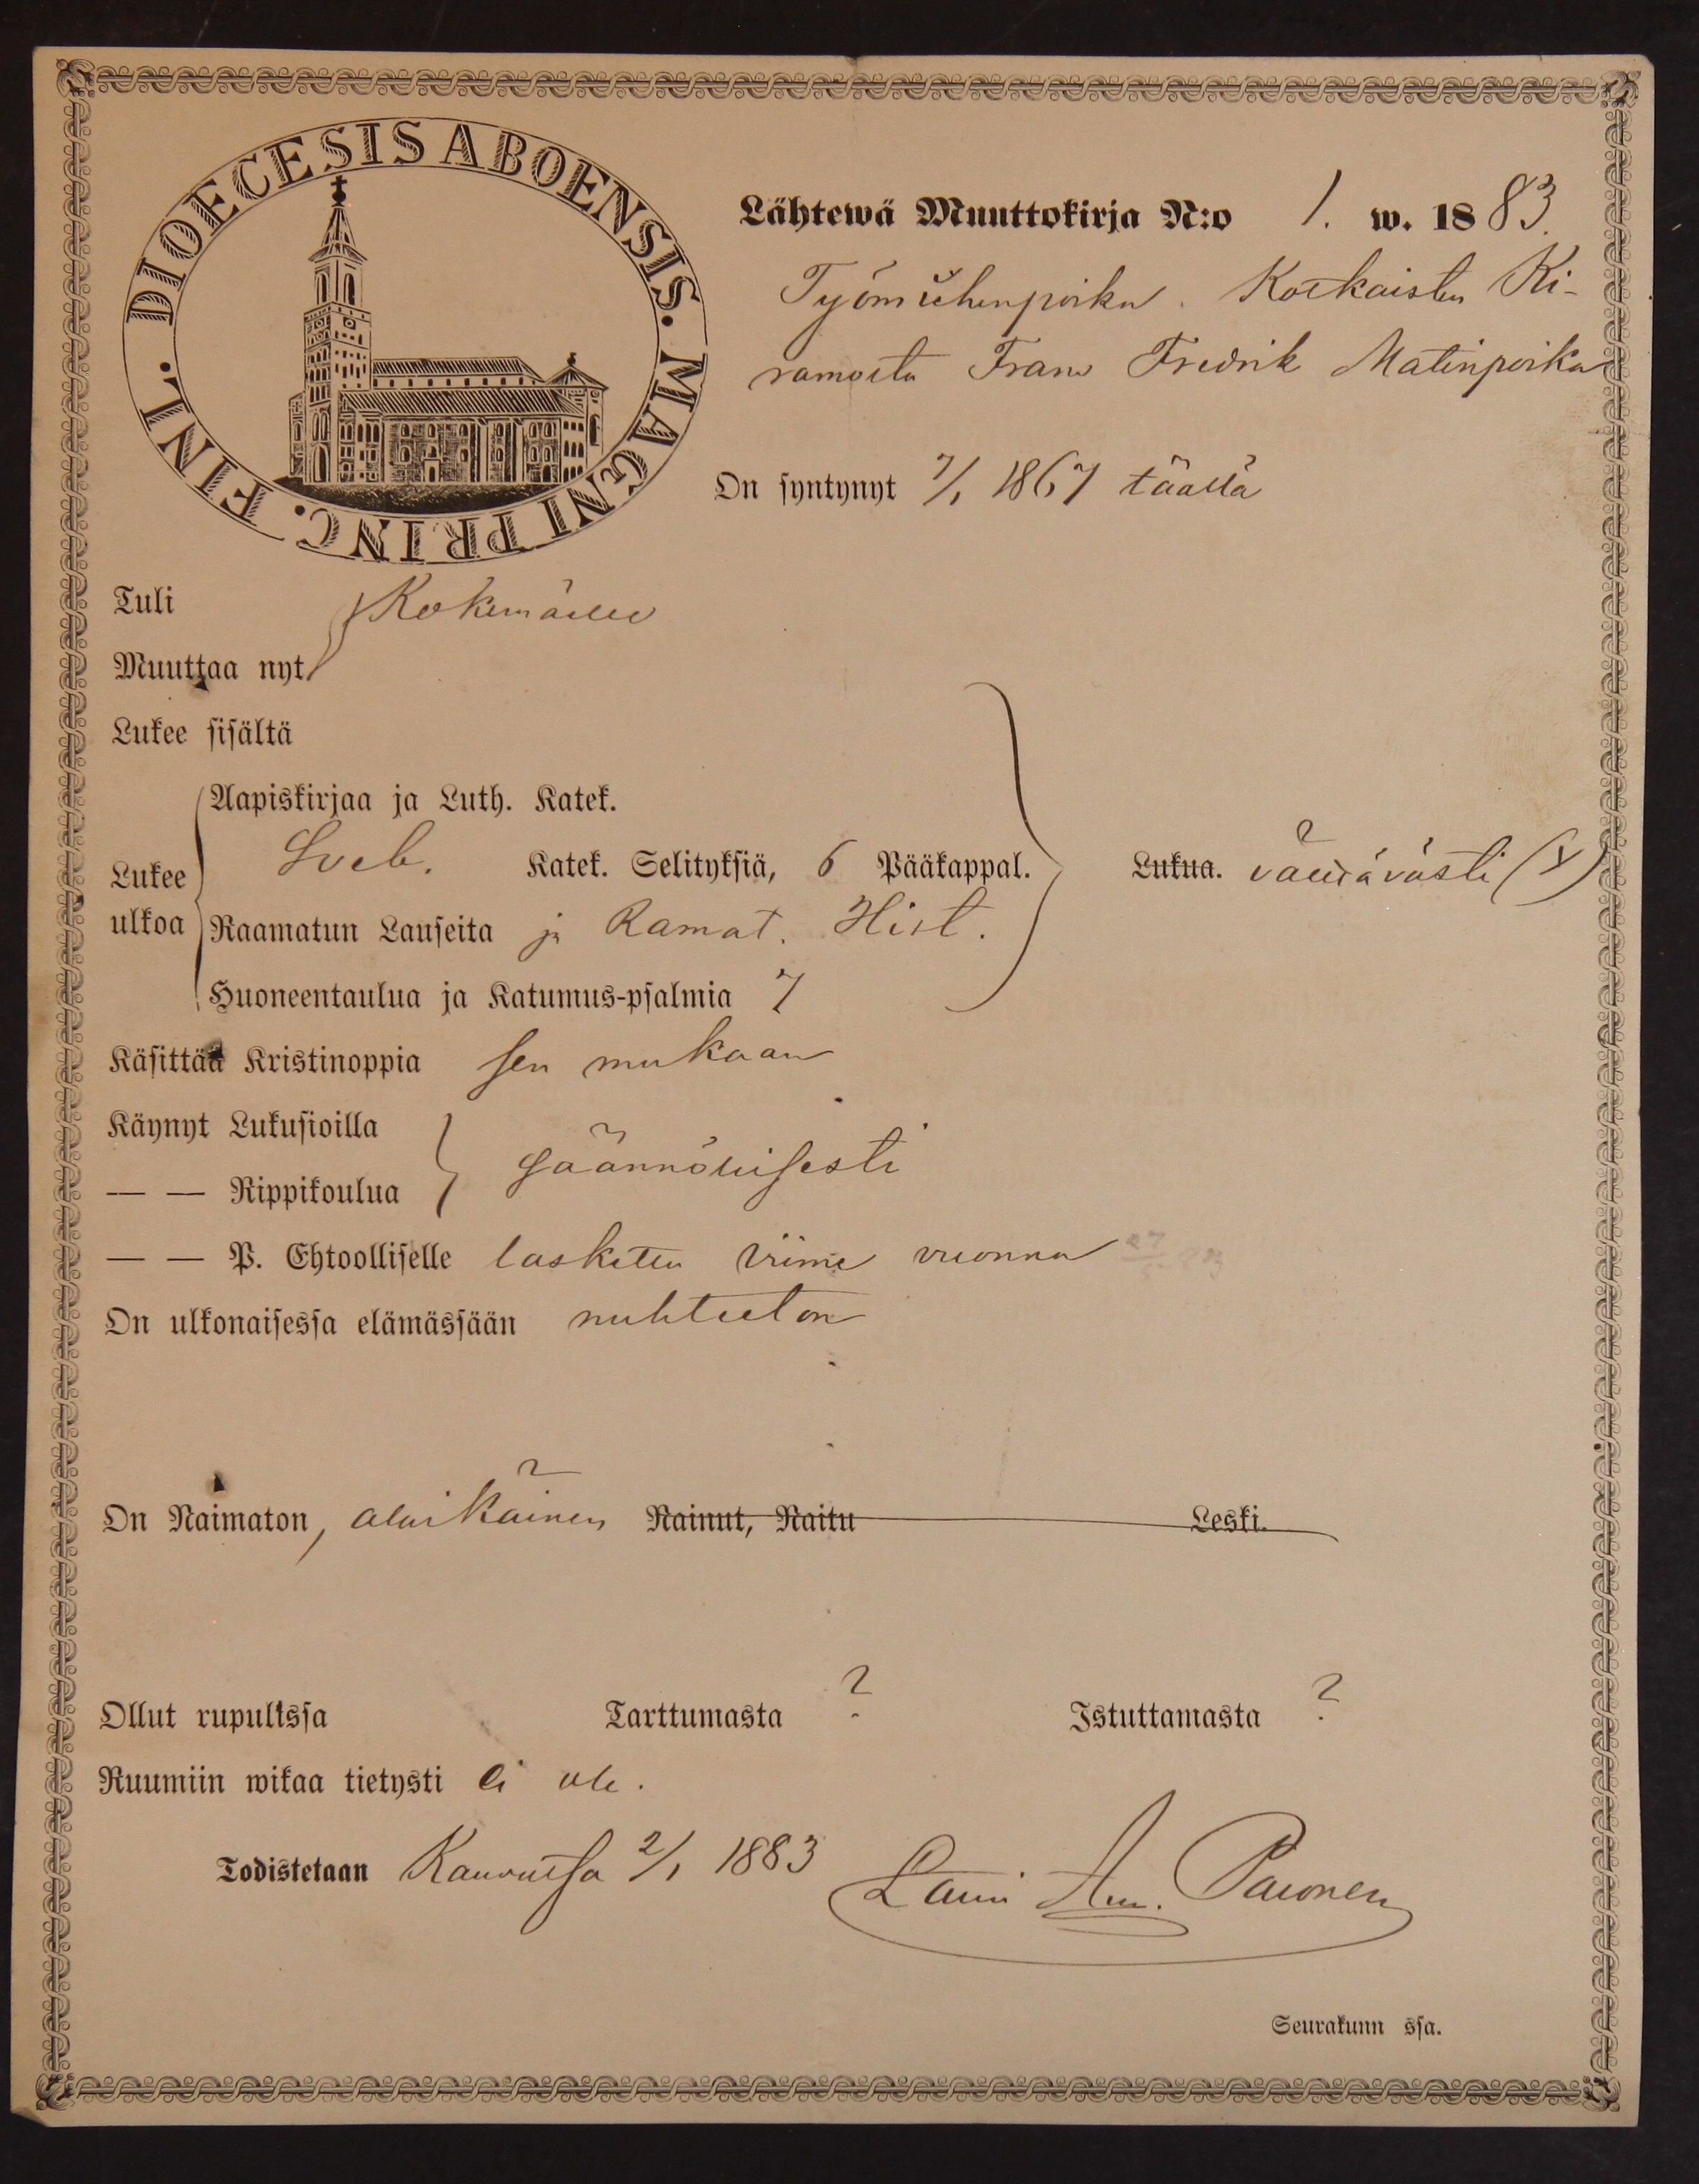 DIOECESIS ABOENSIS. MAGNI PRINC. FINL.
Lähtewä Muuttokirja N:o 1. w. 1883.
Työmiehenpoika Korkaisten Ki-
ramosta Frans Fredrik Matinpoika
On syntynyt 7/1 1867 täällä
Tuli Kokemäelle
Muuttaa nyt
Lukee sisältä
Aapiskirjaa ja Luth. Katek.
Lukee ulkoa Sveb. Katek. Selityksiä, 6 Pääkappal. Lukua. välttävästi (Y)
Raamatun Lauseita ja Ramat. Hist.
Huoneentaulua ja Katumus-psalmia 7
Käsittää Kristinoppia sen mukaan
Käynyt Lukusioilla säännöllisesti
— — Rippikoulua
— — P. Ehtoolliselle laskettu viime vuonna
On ulkonaisessa elämässään nuhteeton
On Naimaton, alaikäinen Nainut, Naitu Leski.
Ollut rupulissa Tarttumasta ? Istuttamasta ?
Ruumiin wikaa tietysti ei ole.
Todistetaan Kauvatsa 2/1 1883 Lauri Am. Paronen
Seurakunn ssa.